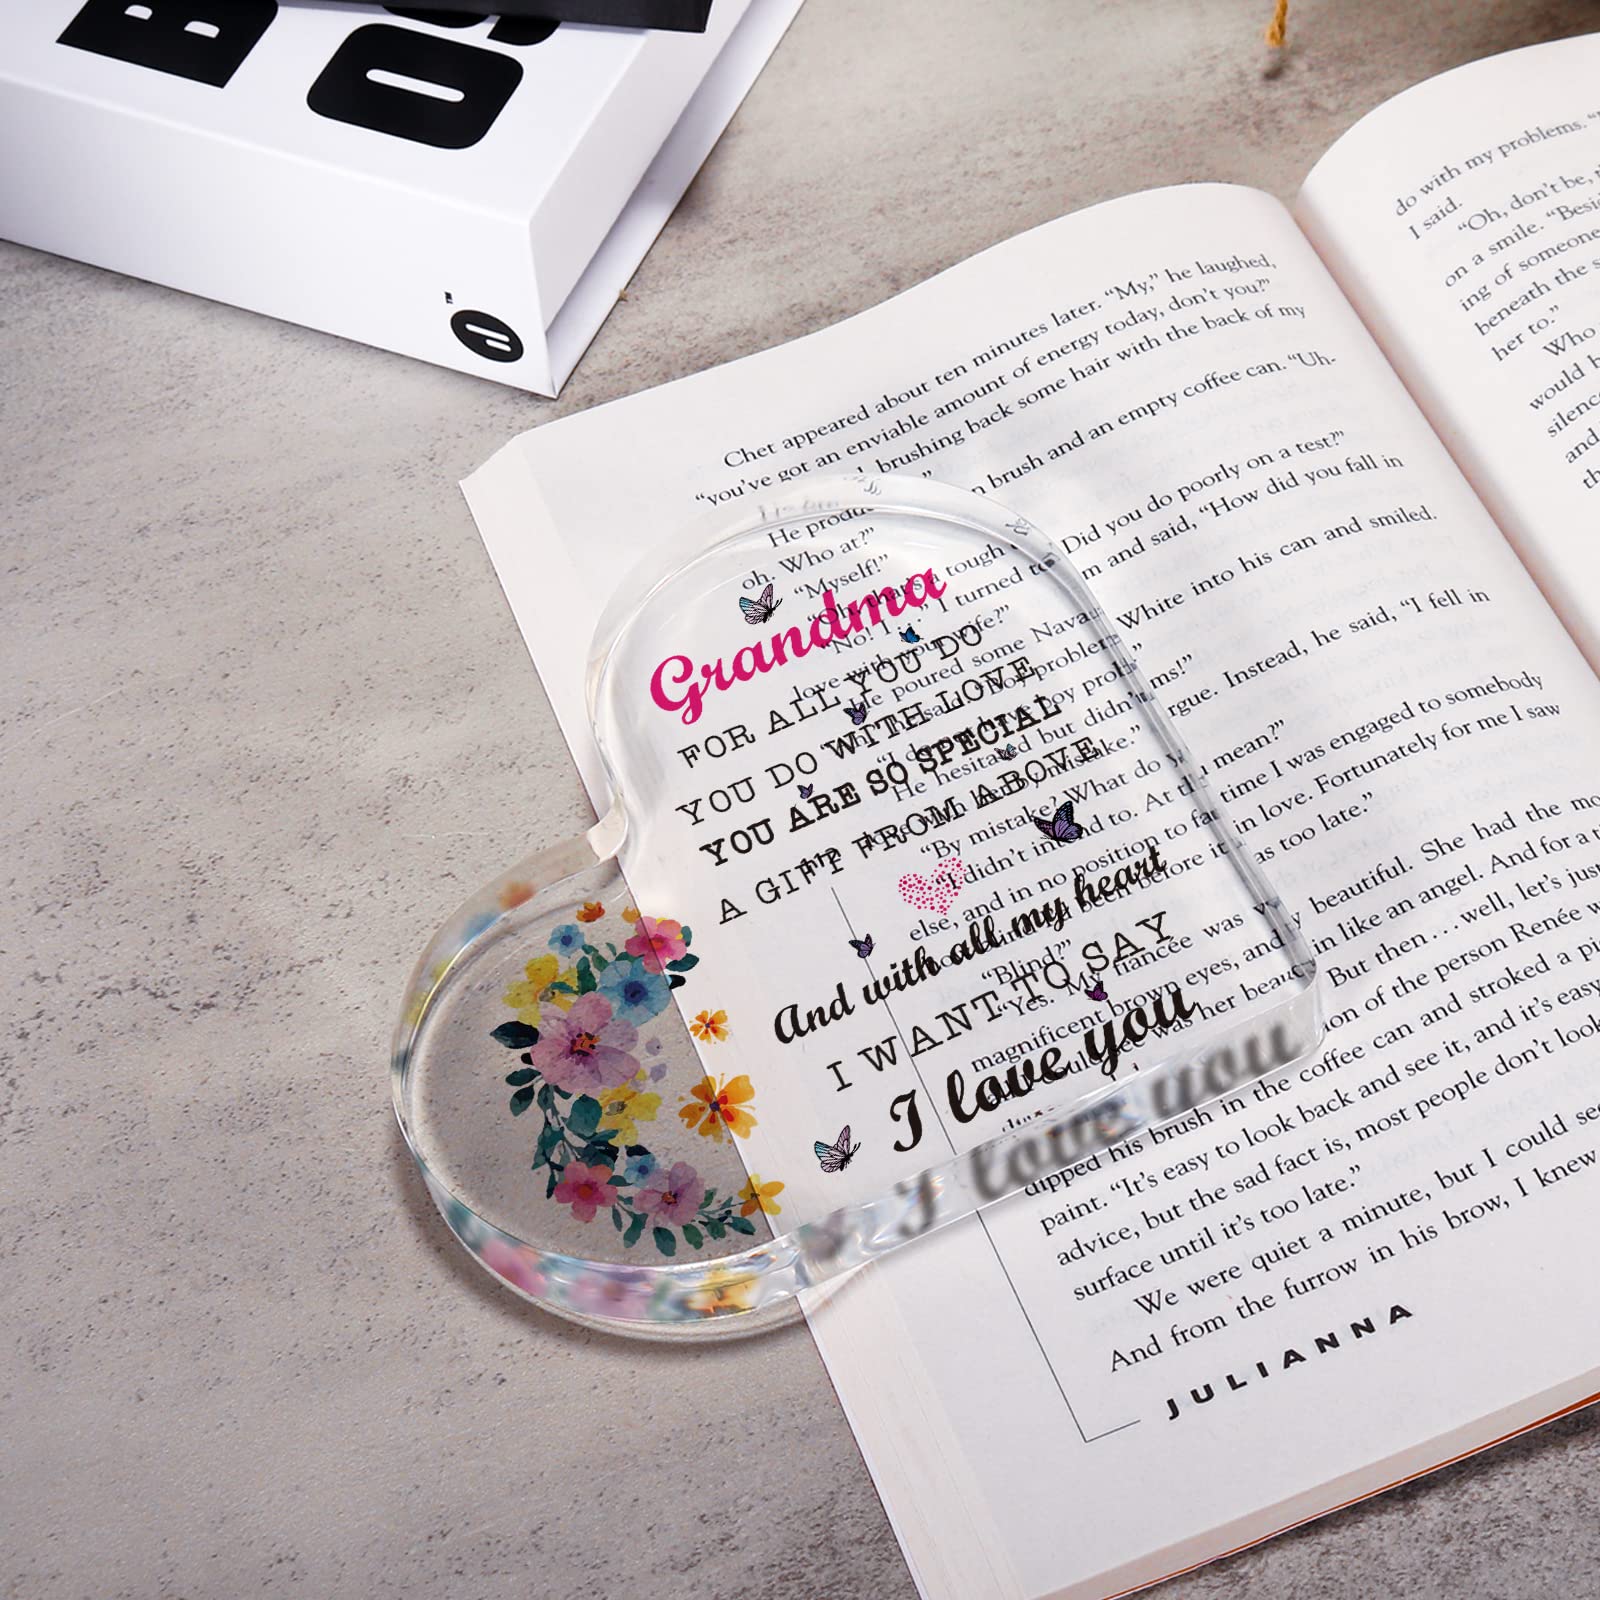 B
OS
™
Chet appeared about ten minutes later. "My," he laughed,
"you've got an enviable amount of energy today, don't you?"
brushing back some hair with the back of my
brush and an empty coffee can. "Uh-
He
oh. Who at?"
"Myself!"
"Oh, that's a tough Did you do poorly on a test?"
"No! I..." I turned to and said, "How did you fall in
love with your wife?"
He poured some Navajo White into his can and smiled.
argue. Instead, he said, "I fell in
He hesitated but didn't
love with her by mistake."
"By mistake? What do you mean?"
"I didn't intend to. At the time I was engaged to somebody
else, and in no position to fall in love. Fortunately for me I saw
before it was too late."
"Blind?"
"Yes. My fiancée was very beautiful. She had the mo
magnificent brown eyes, and
in like an angel. And for a t
her beau
But then...well, let's just
ion of the person Renée w
dipped his brush in the coffee can and stroked a pi
paint. "It's easy to look back and see it, and it's easy
advice, but the sad fact is, most people don't look
surface until it's too late."
We were quiet a minute, but I could see
And from the furrow in his brow, I knew
JULIANNA
Grandma
FOR ALL YOU DO
YOU DO WITH LOVE
YOU ARE SO SPECIAL
A GIFT FROM ABOVE
And with all my heart
I WANT TO SAY
I love you
do with my problems.
I said.
"Oh, don't be,
on a smile. "Besi
ing of someone
beneath the s
her to."
Who
would
silence
and